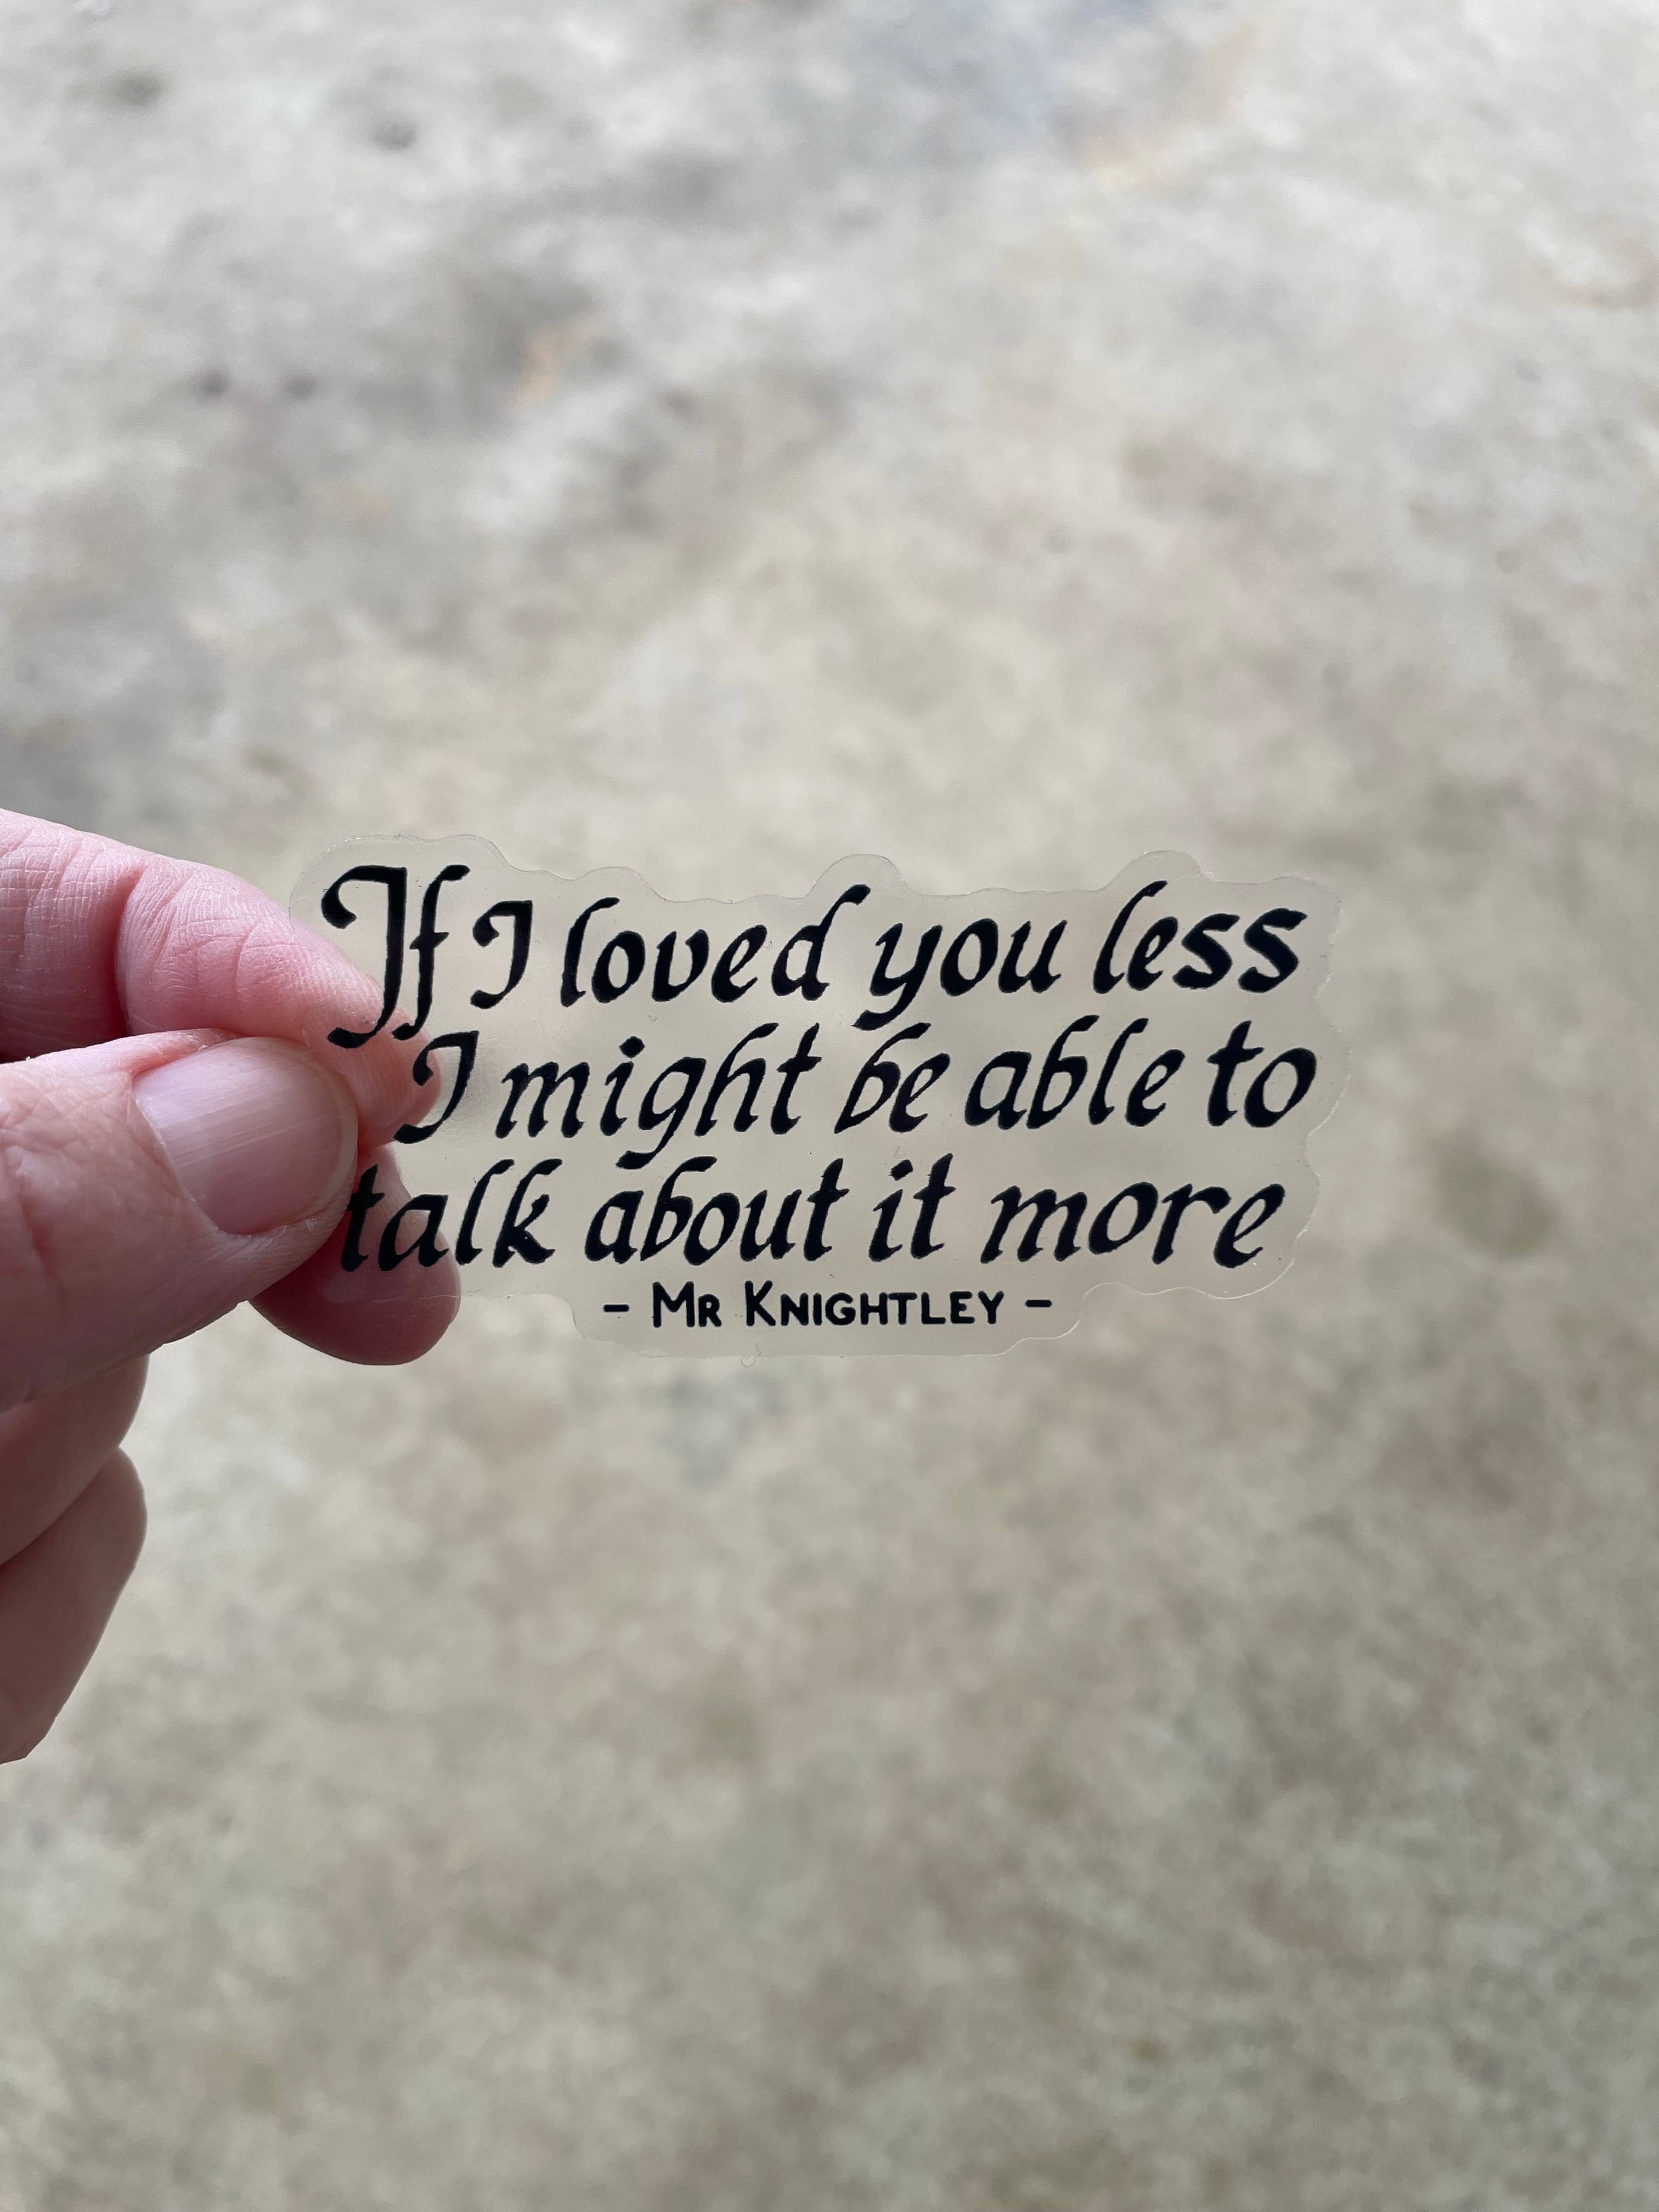 If I loved you less
I might be able to
talk about it more
- MR KNIGHTLEY -